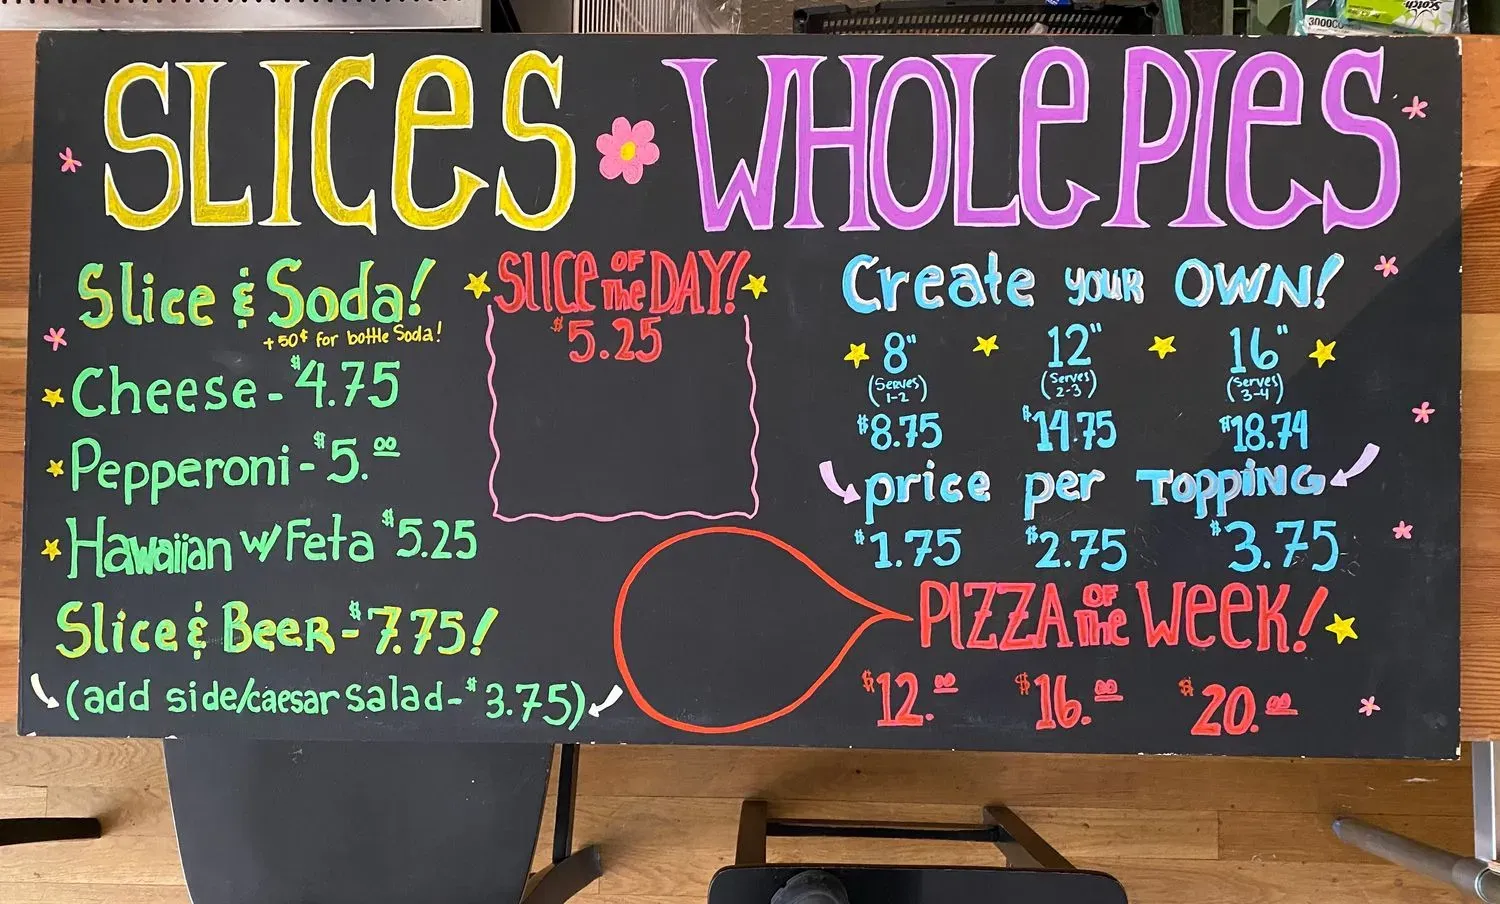 SLICES
WHOLE PIES
Slice & Soda!
+50¢ for bottle Soda!
Cheese - $4.75
Pepperoni - $5.00
Hawaiian w/ Feta $5.25
Slice & Beer - $7.75!
(add side/caesar salad - $3.75)
SLICE OF THE DAY!
$5.25
Create your OWN!
8" 12" 16"
(Serves 1-2) (Serves 2-3) (Serves 3-4)
$8.75 $14.75 $18.74
price per TOPPING
$1.75 $2.75 $3.75
PIZZA OF THE WEEK!
$12.00 $16.00 $20.00
3000CO
Scotch